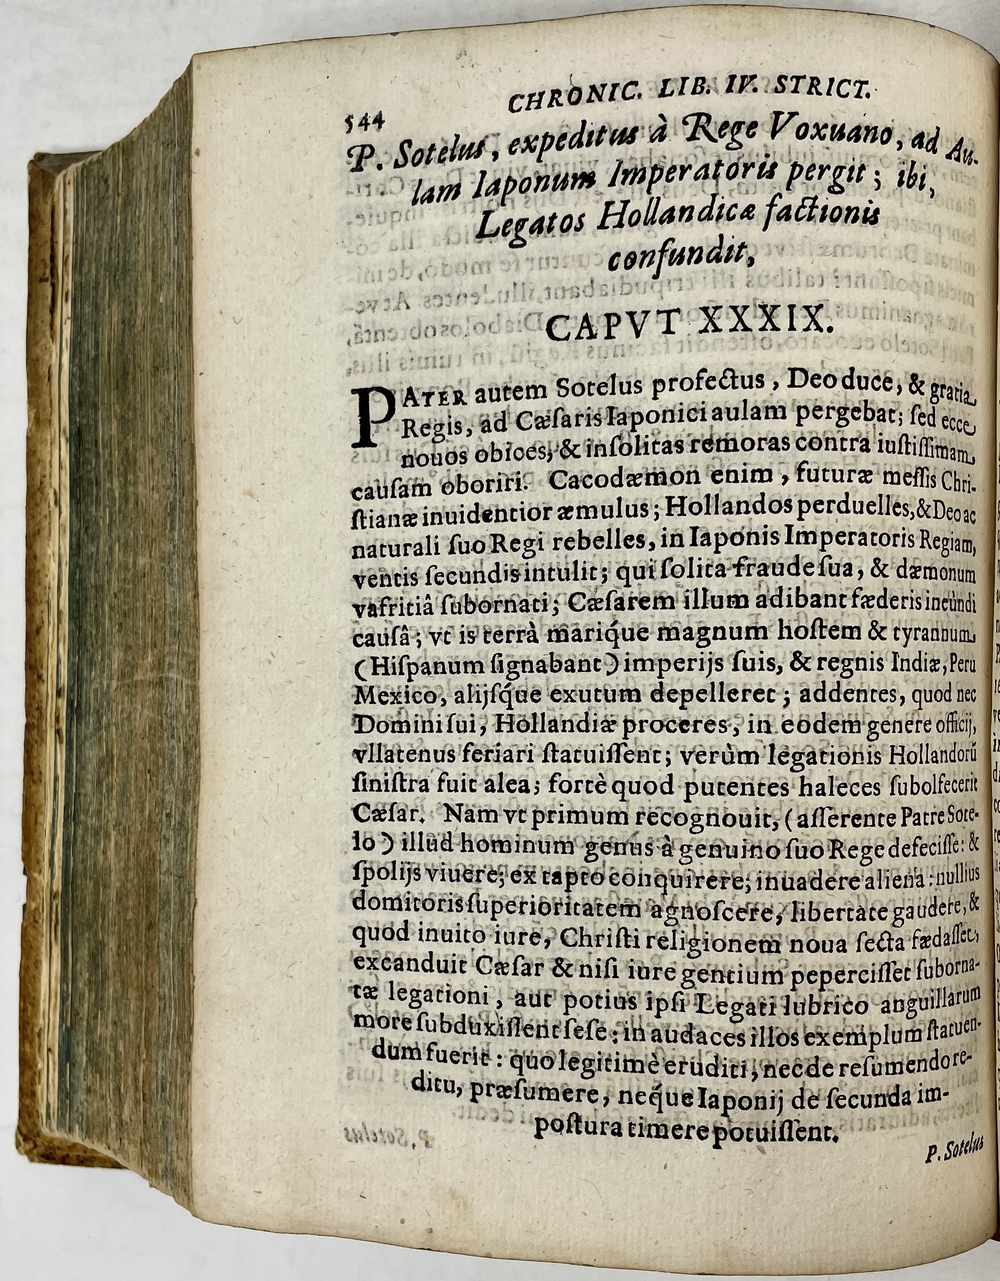 544
CHRONIC. LIB. IV. STRICT.
P. Sotelus, expeditus à Rege Voxuano, ad Au-
lam Iaponum Imperatoris pergit; ibi,
Legatos Hollandicæ factionis
confundit,
CAPVT XXXIX.
PATER autem Sotelus profectus, Deo duce, & gratia
Regis, ad Cæsaris Iaponici aulam pergebat; sed ecce
nouos obices, & insolitas remoras contra iustissimam
causam oboriri. Cacodæmon enim, futuræ messis Chri-
stianæ inuidentior æmulus; Hollandos perduelles, & Deo ac
naturali suo Regi rebelles, in Iaponis Imperatoris Regiam,
ventis secundis intulit; qui solita fraude sua, & dæmonum
vafritiâ subornati; Cæsarem illum adibant fæderis ineundi
causâ; vt is terrà marique magnum hostem & tyrannum
(Hispanum signabant) imperijs suis, & regnis Indiæ, Peru
Mexico, alijsque exutum depelleret; addentes, quod nec
Domini sui, Hollandiæ proceres, in eodem genere officij,
vllatenus feriari statuissent; verùm legationis Hollandorũ
sinistra fuit alea; fortè quod putentes haleces subolfecerit
Cæsar. Nam vt primum recognouit, (asserente Patre Sote-
lo) illud hominum genus à genuino suo Rege defecisse: &
spolijs viuere; ex rapto conquirere; inuadere aliena: nullius
domitoris superioritatem agnoscere, libertate gaudere, &
quod inuito iure, Christi religionem noua secta fædasset,
excanduit Cæsar & nisi iure gentium pepercisset suborna-
tæ legationi, aut potius ipsi Legati lubrico anguillarum
more subduxissent sese; in audaces illos exemplum statuen-
dum fuerit: quo legitimè eruditi, nec de resumendo re-
ditu, præsumere, neque Iaponij de secunda im-
postura timere potuissent.
P. Sotelus